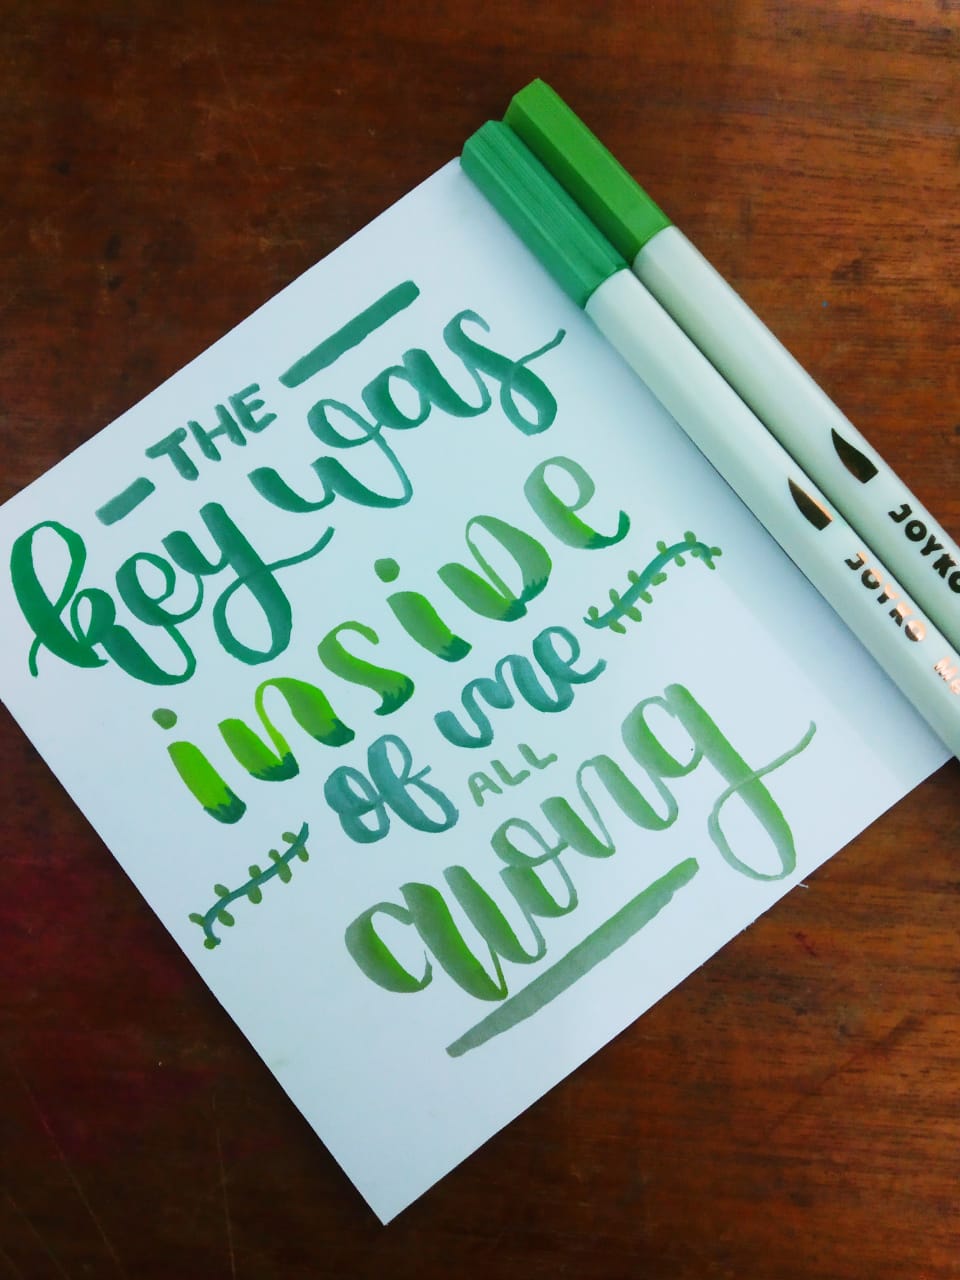 THE
key was
inside
of me
ALL
along
JOYKO
JOYKO